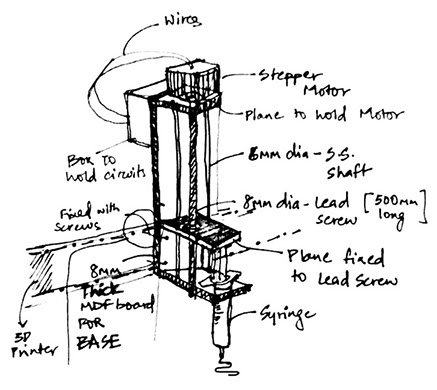 Wires
Stepper
Motor
Plane to hold Motor
Box to
hold circuits
6mm dia - S.S.
shaft
Fixed with
screws
8mm dia - Lead
screw [500mm
long]
Plane fixed
to Lead Screw
8mm
Thick
MDF board
FOR
BASE
3D
Printer
Syringe